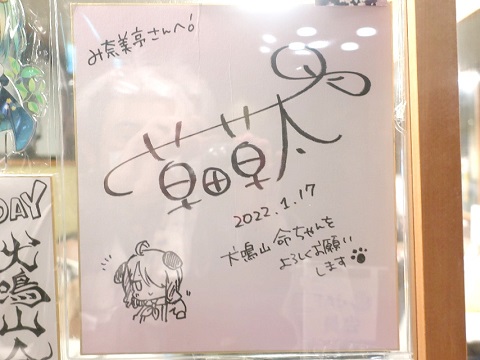 み奈美亭さんへ!
草田草太
2022.1.17
犬鳴山命ちゃんを
よろしくお願い
します
DAY
犬鳴山